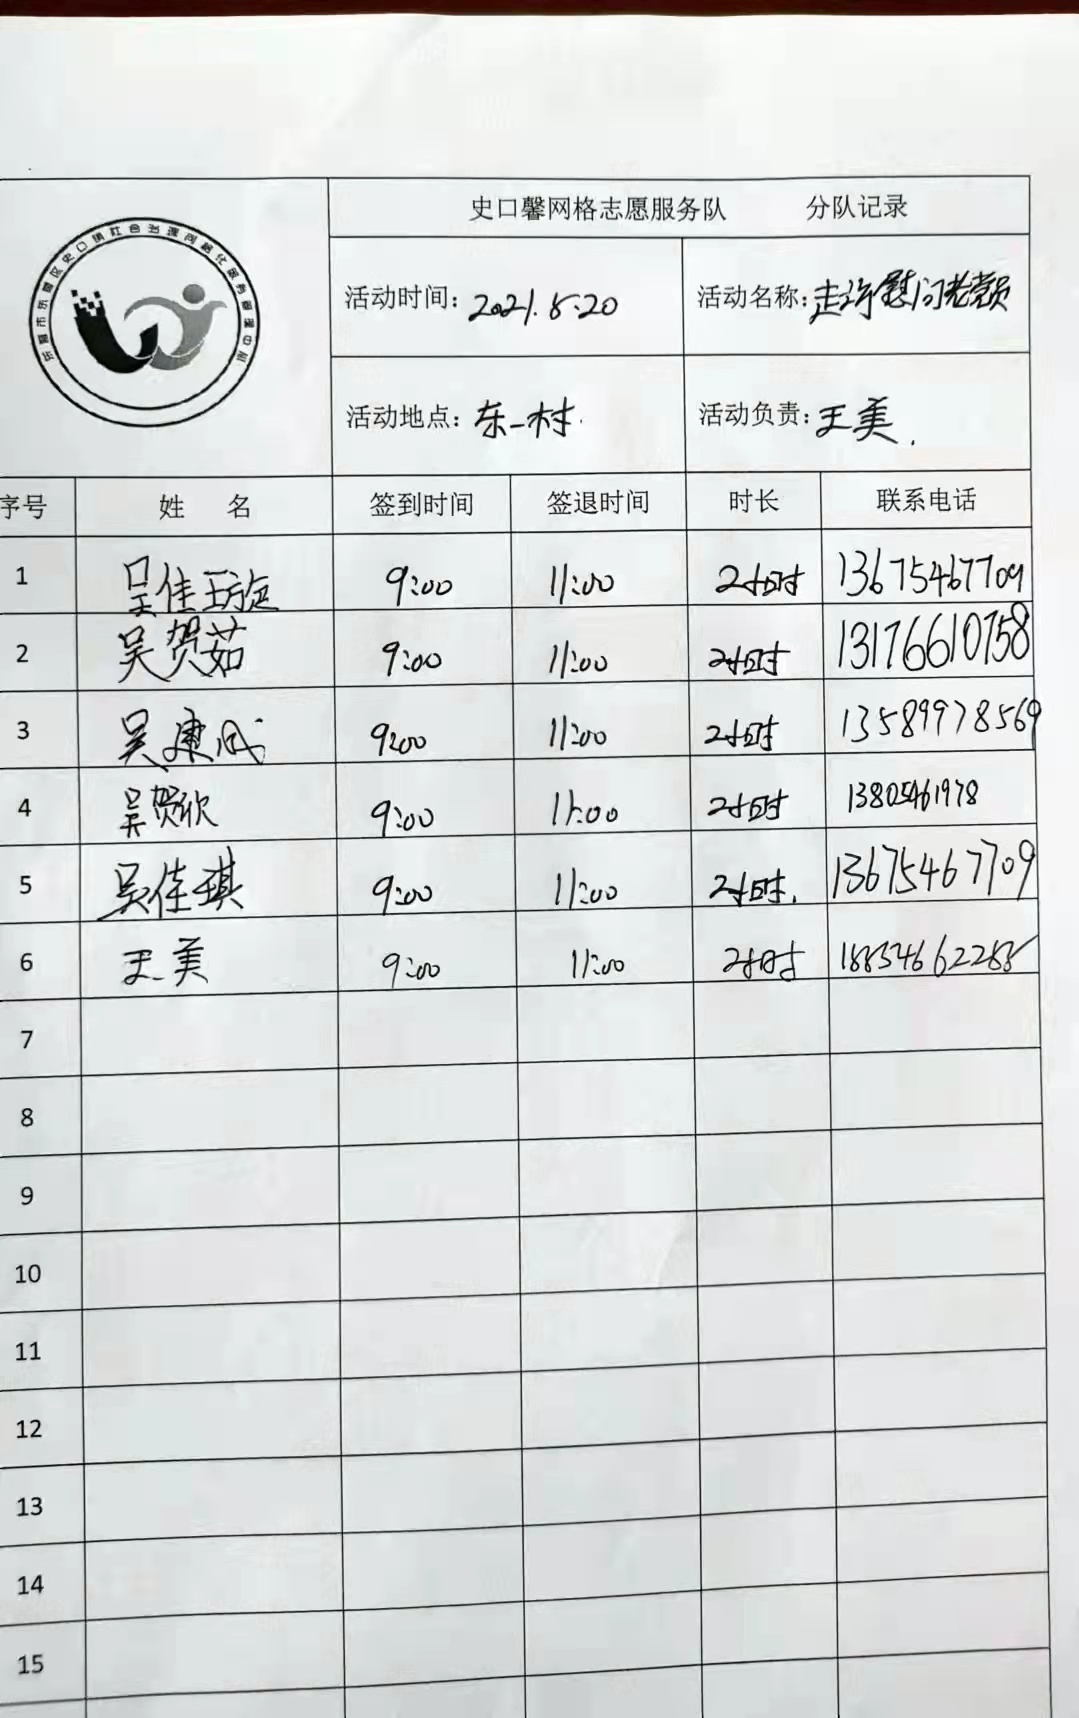 史口馨网格志愿服务队 分队记录
东营市东营区史口镇社会治理网格化服务管理中心
活动时间: 2021.5.20 活动名称: 走访慰问老党员
活动地点: 东一村. 活动负责: 王美.
序号 姓 名 签到时间 签退时间 时长 联系电话
1 吴佳璇 9:00 11:00 2小时 13675467709
2 吴贺茹 9:00 11:00 2小时 13176610758
3 吴康成 9:00 11:00 2小时 13589978569
4 吴贺欣 9:00 11:00 2小时 13805461978
5 吴佳琪 9:00 11:00 2小时. 13675467709
6 王美 9:00 11:00 2小时
7
8
9
10
11
12
13
14
15